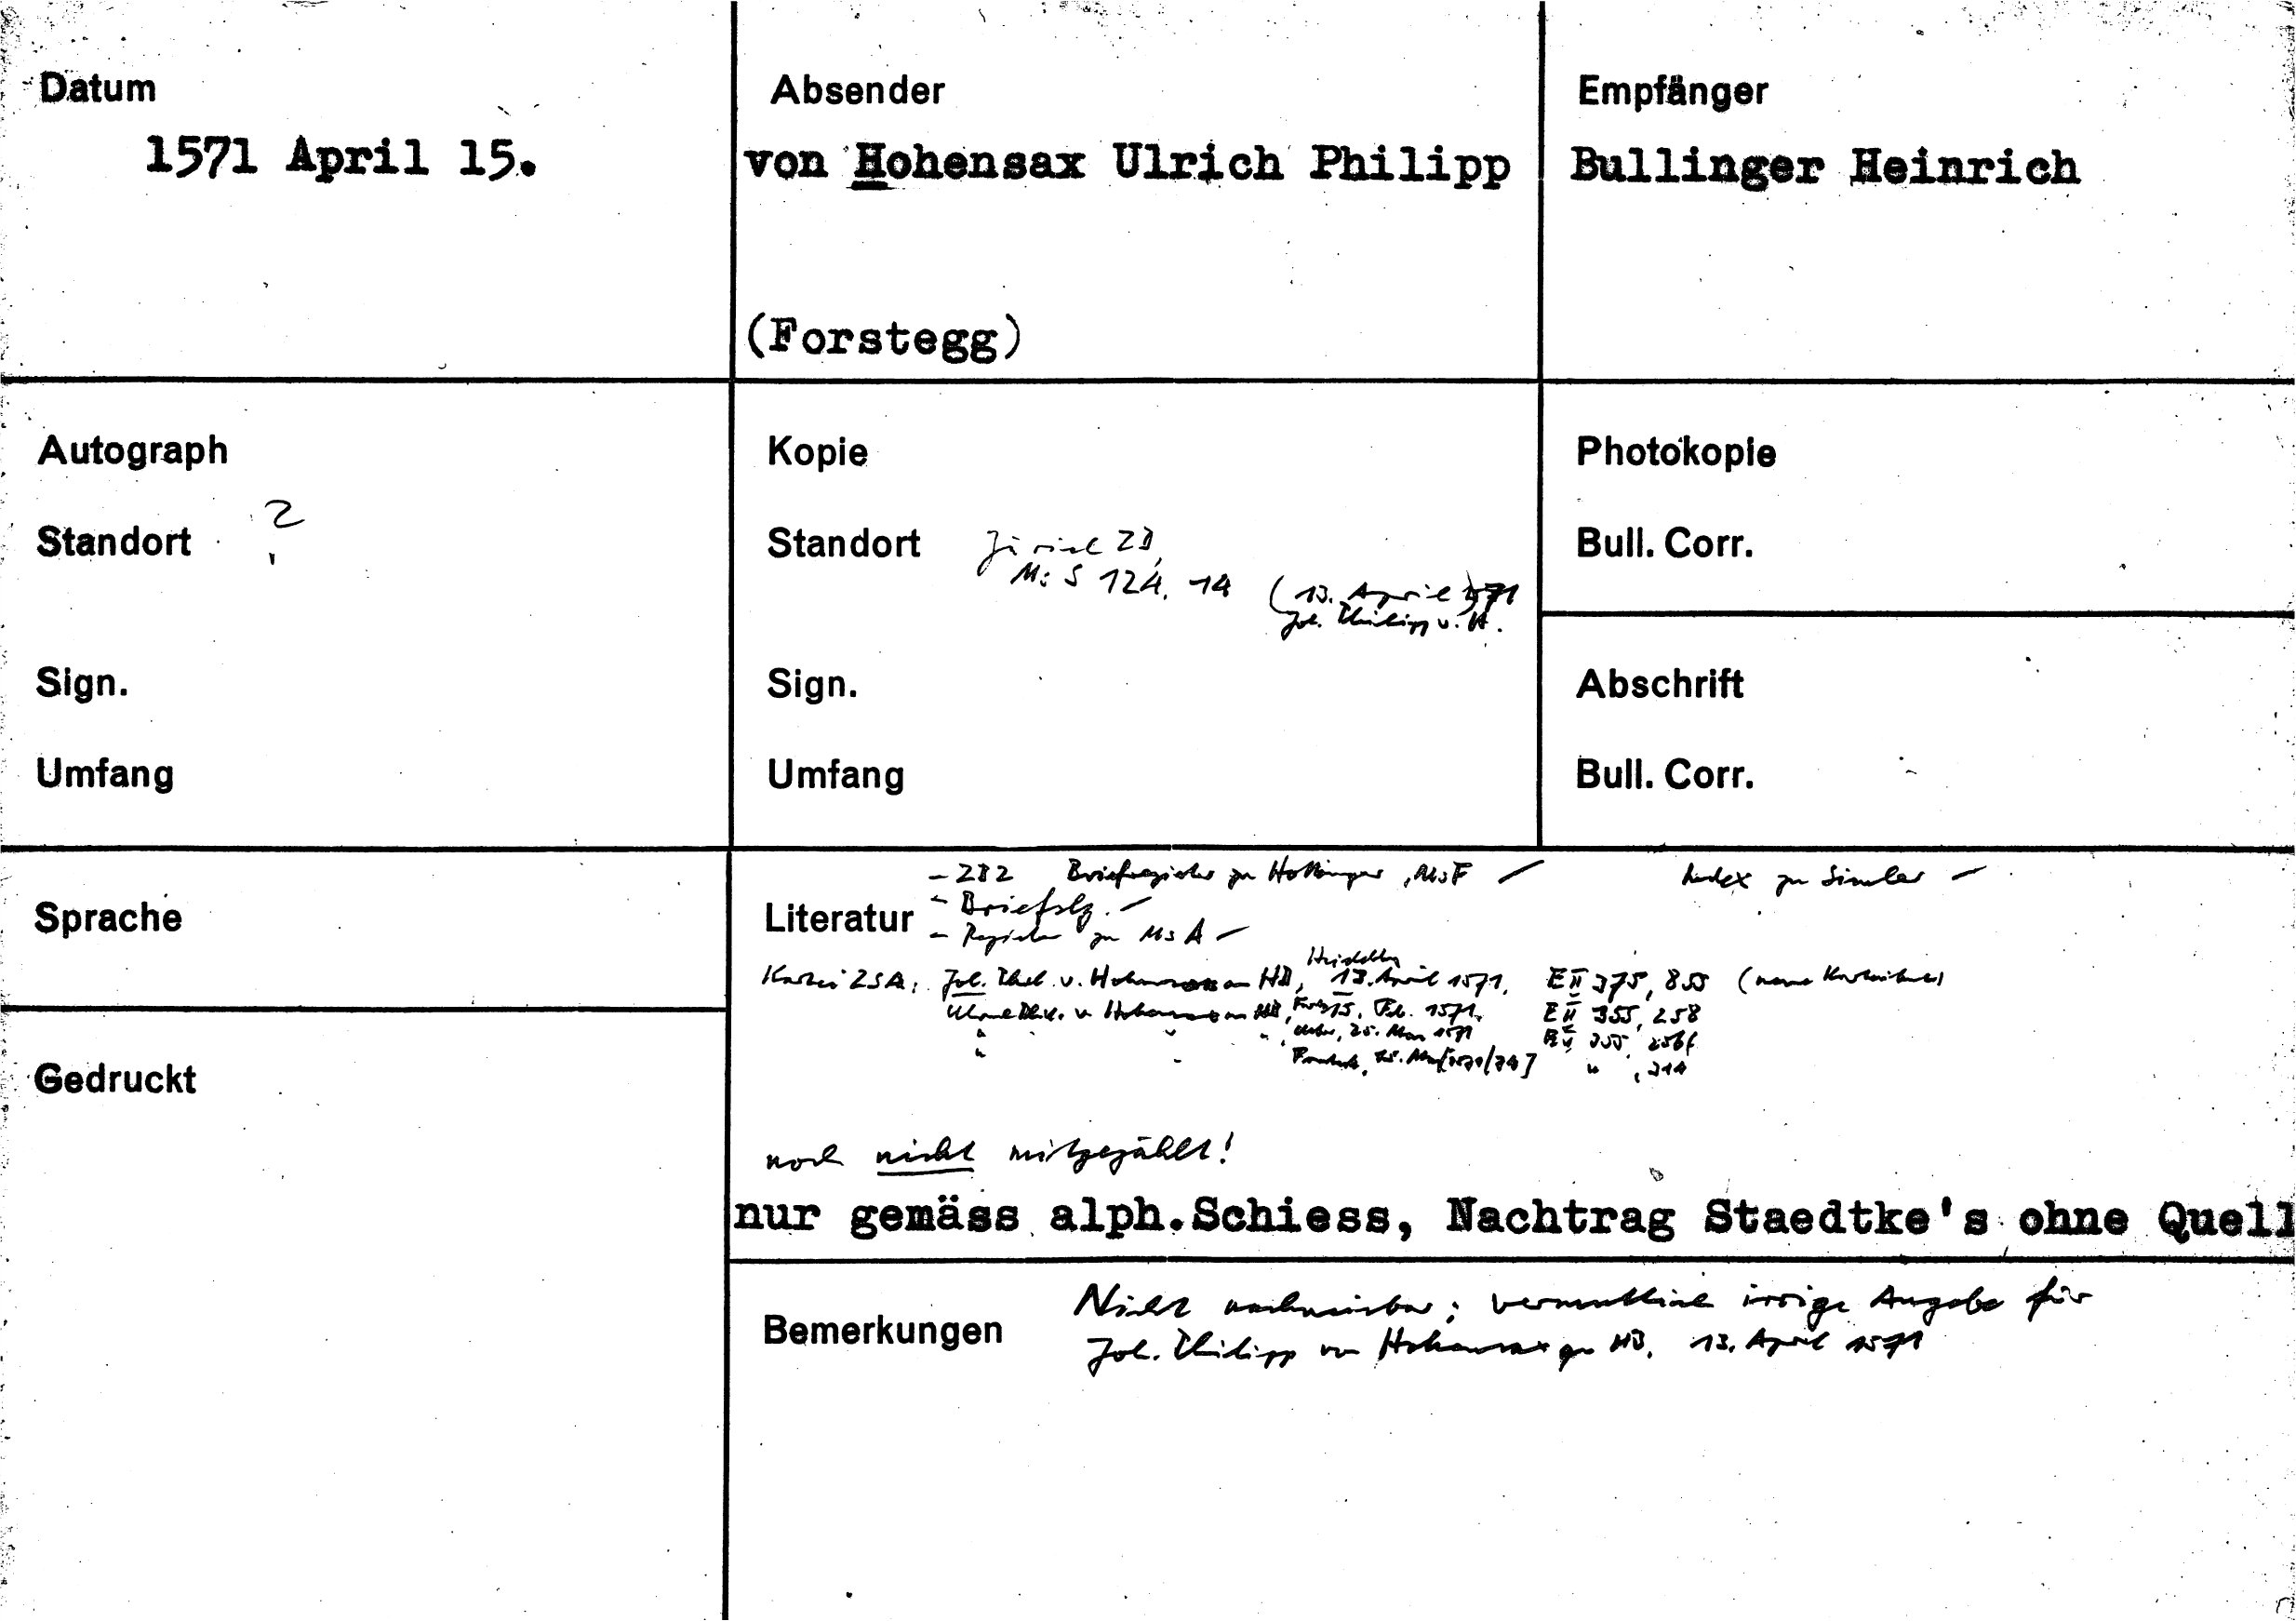 Datum
1571 April 15.
Absender
von Hohensax Ulrich Philipp
(Forstegg)
Empfänger
Bullinger Heinrich
Autograph
Standort ?
Sign.
Umfang
Kopie
Standort Zürich ZB,
Ms S 124, 14 (13. April 1571
Joh. Philipp v. H.
Sign.
Umfang
Photokopie
Bull. Corr.
Abschrift
Bull. Corr.
Sprache
Gedruckt
- ZBZ Briefregister zu Hottinger, Ms F — Index zu Simler —
Literatur - Briefslg. —
- Register zu Ms A —
Heidelbg
Kartei ZSA: Joh. Phil. v. Hohensax an HB, 13. April 1571, E II 375, 855 (neue Karteikarte)
v. Hohensax an HB, 15. Feb. 1571, E II 355, 258
" " ", 25. 1571 355,
" " 25. [1571/74] " , 314
noch nicht mitgezählt!
nur gemäss alph.Schiess, Nachtrag Staedtke's ohne Quell
Bemerkungen
Nicht nachweisbar; vermutlich irrige Angabe für
Joh. Philipp von Hohensax an HB, 13. April 1571